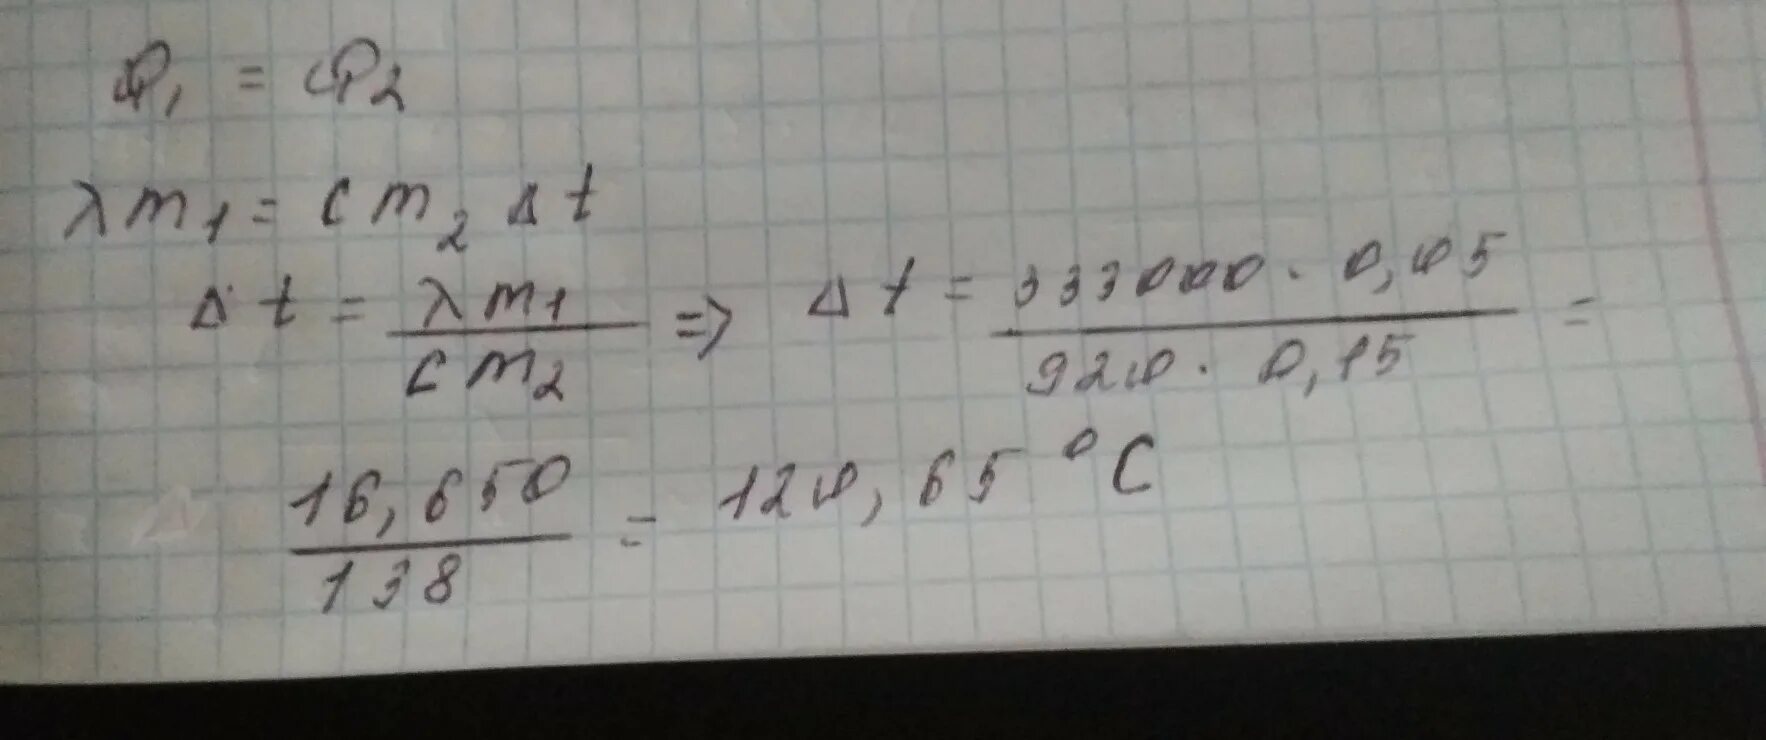 Q₁ = Q₂
λm₁ = cm₂Δt
Δt = λm₁ / cm₂ => Δt = 333000 · 0,05 / 920 · 0,15 =
16,650 / 138 = 120,65 °C